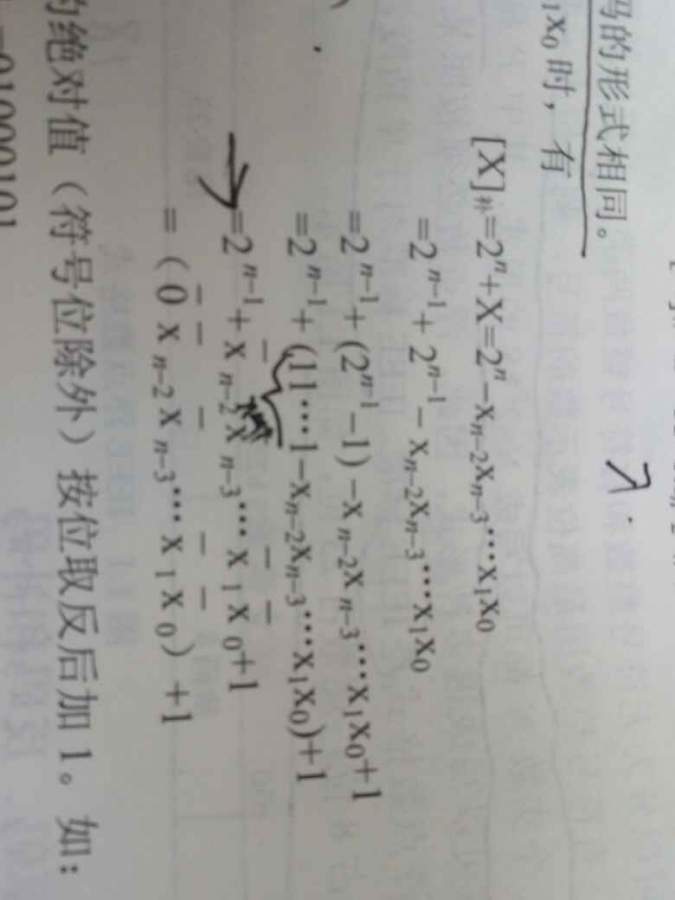 码的形式相同。
₁x₀ 时，有
[X]补=2ⁿ+X=2ⁿ−xₙ₋₂xₙ₋₃⋯x₁x₀
=2ⁿ⁻¹+2ⁿ⁻¹−xₙ₋₂xₙ₋₃⋯x₁x₀
=2ⁿ⁻¹+(2ⁿ⁻¹−1)−xₙ₋₂xₙ₋₃⋯x₁x₀+1
=2ⁿ⁻¹+(11⋯1−xₙ₋₂xₙ₋₃⋯x₁x₀)+1
=2ⁿ⁻¹+x̄ₙ₋₂x̄ₙ₋₃⋯x̄₁x̄₀+1
=（0̄x̄ₙ₋₂x̄ₙ₋₃⋯x̄₁x̄₀）+1
的绝对值（符号位除外）按位取反后加1。如：